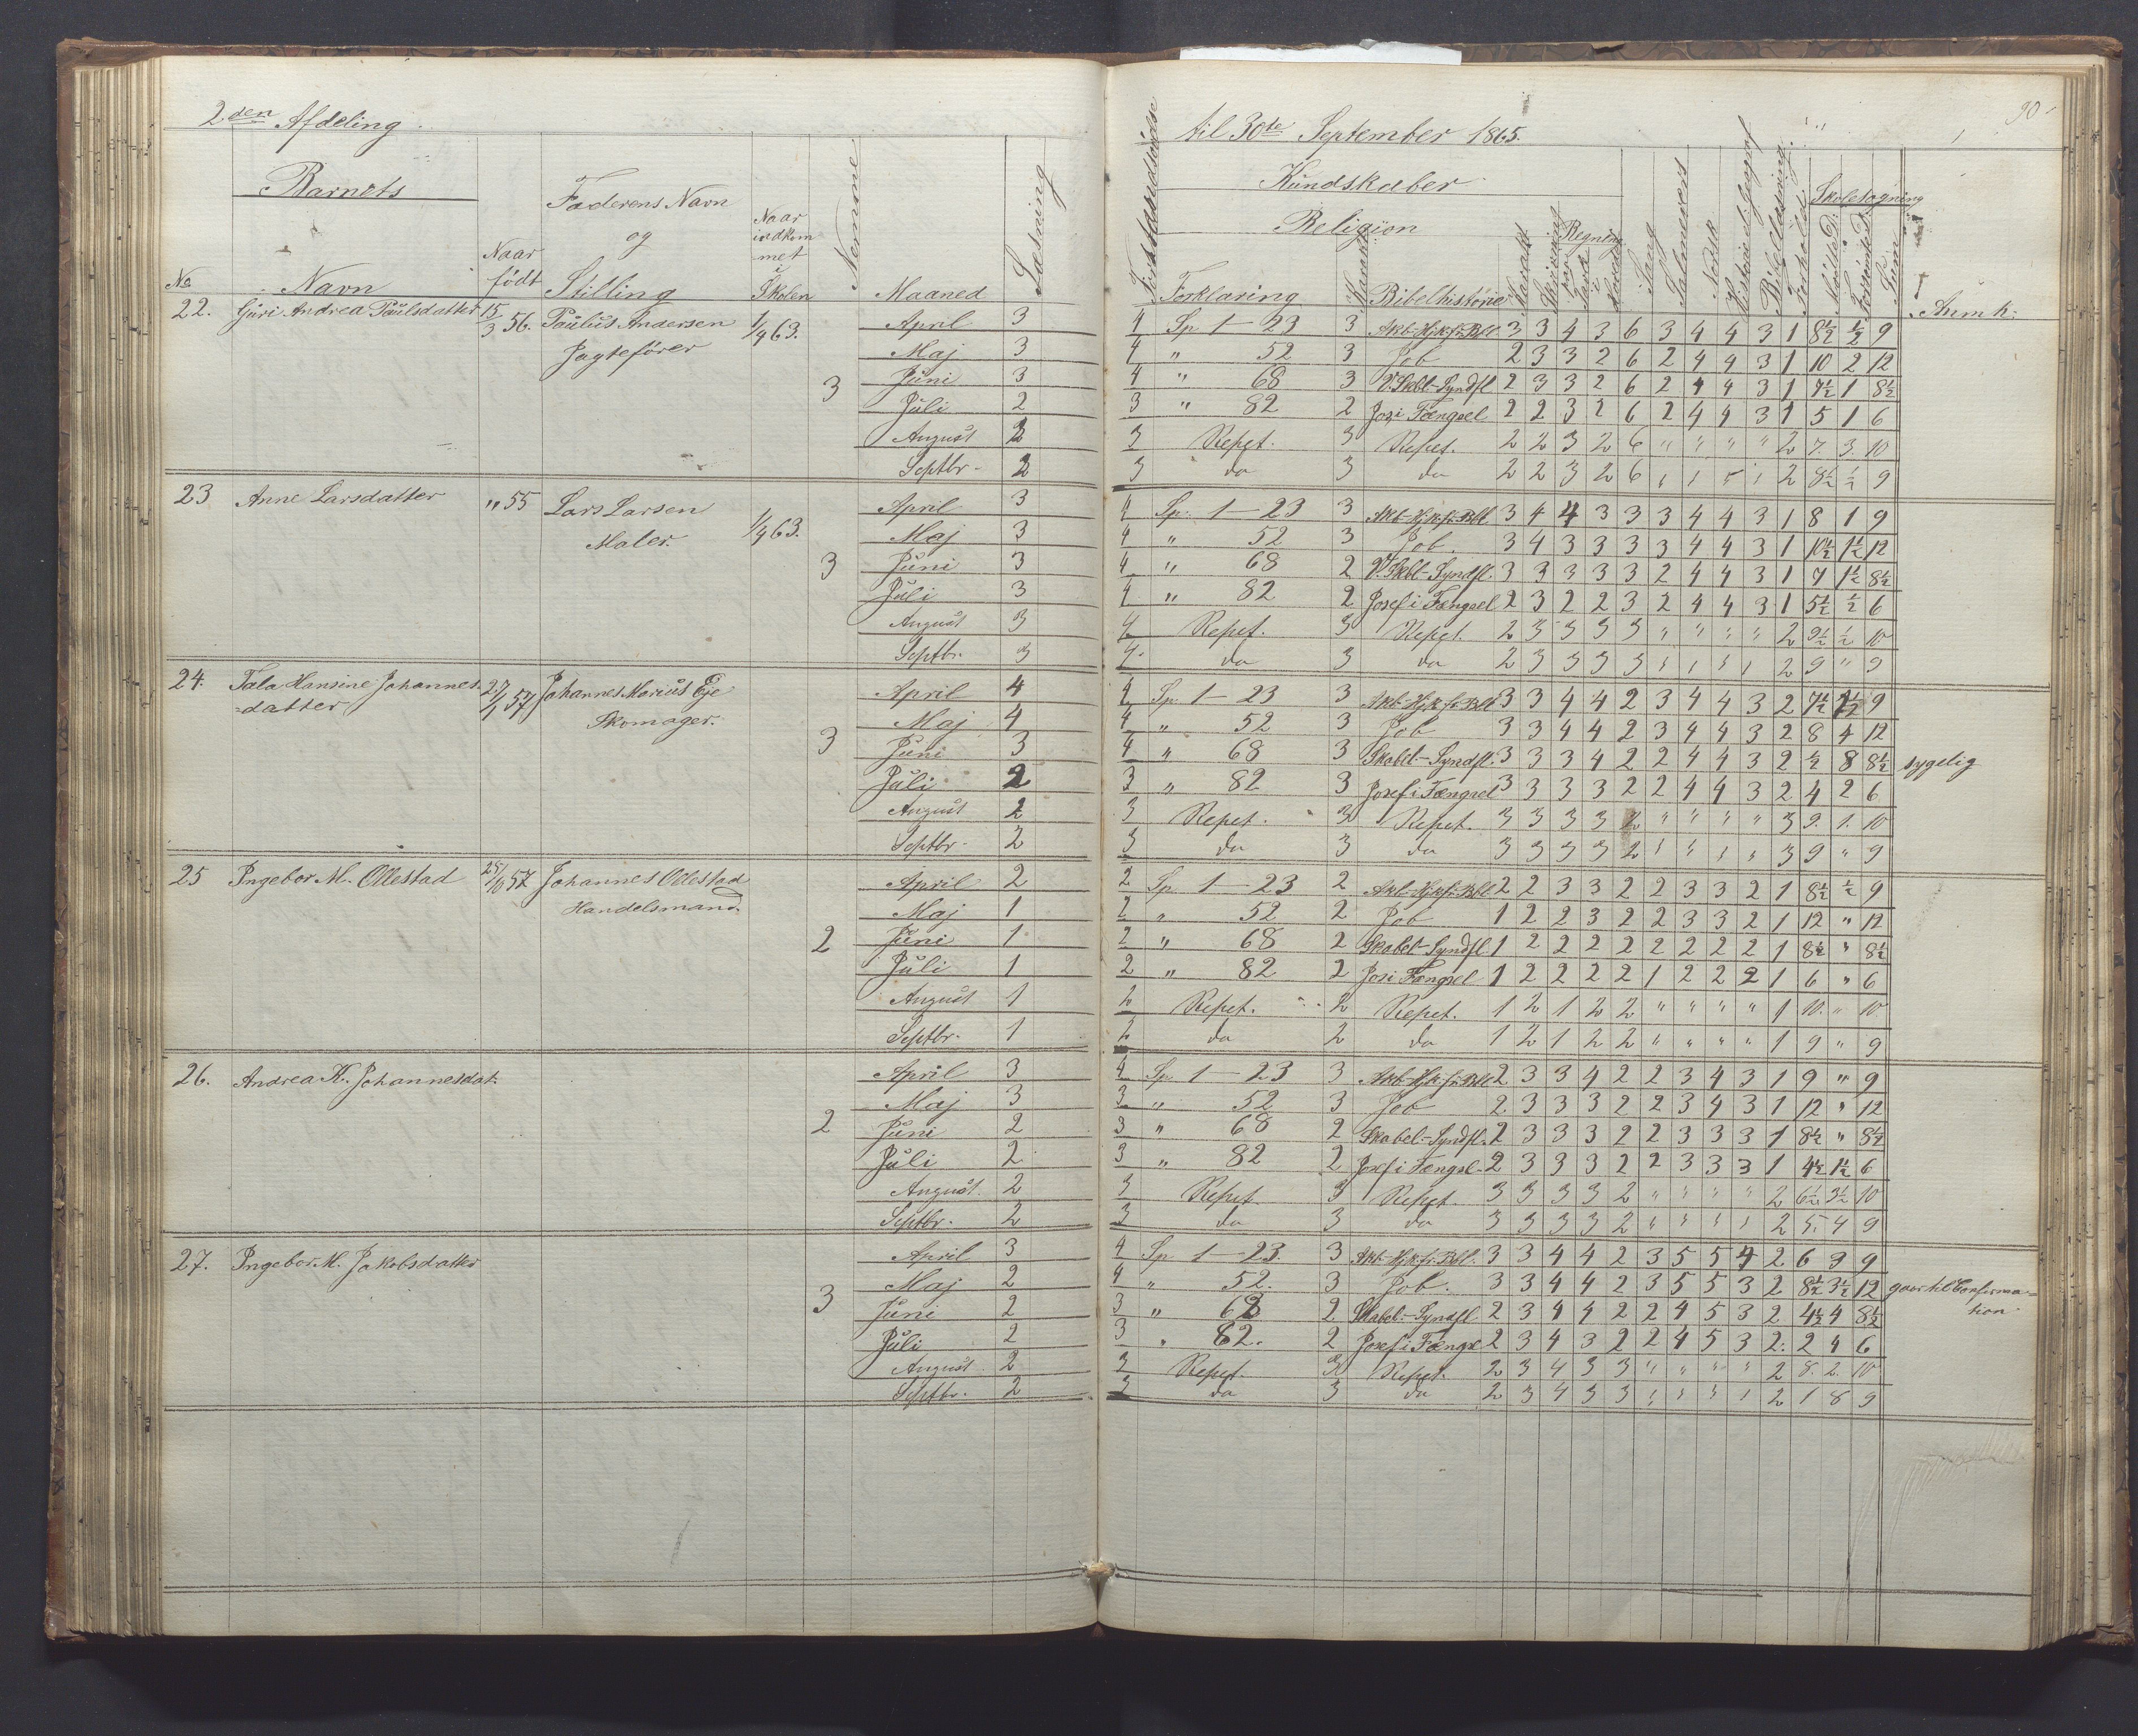 2den Afdeling.
Barnets
No
Navn
Naar født
Faderens Navn og Stilling
Naar indkommet i Skolen
Nemme
Maaned
Læsning
22. Guri Andrea Paulsdatter 15/3 56. Paulus Andersen 1/9 63.
Jagtefører
3
April 3
Maj 3
Juni 3
Juli 2
August 2
Septbr. 2
23 Anne Larsdatter " 55 Lars Larsen 1/9 63.
Maler.
3
April 3
Maj 3
Juni 3
Juli 3
August 3
Septbr. 3
24. Tala Hansine Johannes- 27/1 57 Johannes Marius Eje
=datter Skomager.
3
April 4
Maj 4
Juni 3
Juli 2
August 2
Septbr. 2
25 Ingebor M. Ollestad 25/10 57 Johannes Ollestad
Handelsmand.
2
April 2
Maj 1
Juni 1
Juli 1
August 1
Septbr. 1
26. Andrea K. Johannesdat.
2
April 3
Maj 3
Juni 2
Juli 2
August. 2
Septbr. 2
27. Ingebor M. Jakobsdatter
3
April 3
Maj 2
Juni 2
Juli 2
August. 2
Septbr. 2
90
til 30te September 1865.
Kundskaber
Religion
Forklaring
Karakt.
Bibelhistorie
Karakt.
Skrivning
Regning
Sang
Salmevers
Bibellæsning
Forhold
Skolesøgning
Mødte D.
Forsømte D.
Sum
Anmk:
4 Sp. 1-23 3 Akb-Hjk.fr.Bbl. 3 3 4 3 6 3 4 4 3 1 8½ ½ 9
4 " 52 3 Job 2 3 3 2 6 2 4 4 3 1 10 2 12
4 " 68 3 V. Skbl-Syndfl 2 3 3 2 6 2 4 4 3 1 7½ 1 8½
3 " 82 2 Jos i Fængsel 2 2 3 2 6 2 4 4 3 1 5 1 6
3 Repet. 3 Repet. 2 2 3 2 6 " " " " 2 7. 3. 10
3 do 3 do 2 2 3 2 6 2 8½ ½ 9
4 Sp. 1-23 3 Akb-Hjk.fr.Bbl 3 4 4 3 3 3 4 4 3 1 8 1 9
4 " 52 3 Job. 3 4 3 3 3 3 4 4 3 1 10½ 1½ 12
4 " 68 2 V. Skbl-Syndfl. 3 3 3 3 3 2 4 4 3 1 7 1½ 8½
4 " 82 2 Josef i Fængsel 2 3 2 2 3 2 4 4 3 1 5½ ½ 6
4 Repet. 3 Repet. 2 3 3 3 3 " " " " 2 9½ ½ 10
4. do 3 do 2 3 3 3 3 2 9 " 9
4 Sp. 1-23 3 Akb-Hjk.fr.Bbl 3 3 4 4 2 3 4 4 3 2 7½ 1½ 9
4 " 52 3 Job 3 3 4 4 2 3 4 4 3 2 8 4 12
4 " 68 3 Skabel.-Syndfl. 3 3 3 4 2 2 4 4 3 2 ½ 8 8½ sygelig
3 " 82 3 Josef i Fængsel 3 3 3 3 2 2 4 4 3 2 4 2 6
3 Repet. 3 Repet. 3 3 3 3 2 " " " " 3 9. 1. 10
3 do 3 do 3 3 3 3 2 3 9 " 9
2 Sp. 1-23 2 Akb-Hjk.fr.Bbl 2 2 3 3 2 2 3 3 2 1 8½ ½ 9
2 " 52 2 Job 1 2 2 3 2 2 3 3 2 1 12 " 12
2 " 68 2 Skabel-Syndfl. 1 2 2 2 2 2 2 2 2 1 8½ " 8½
2 " 82 2 Jos i Fængsel 1 2 2 2 2 1 2 2 2 1 6 " 6
2 Repet. 2 Repet. 1 2 1 2 2 " " " " 1 10. " 10.
2 do 2 do 1 2 1 2 2 " " " " 1 9 " 9
4 Sp. 1-23 3 Akb-Hjk.fr.Bbl 2 3 3 4 2 2 3 4 3 1 9 " 9
3 " 52 3 Job 2 3 3 3 2 2 3 4 3 1 12 " 12
3 " 68 2 Skabel.-Syndfl. 2 3 3 3 2 2 3 3 3 1 8½ " 8½
3 " 82 2 Josef i Fængsl. 2 3 3 3 2 2 3 3 3 1 4½ 1½ 6
3 Repet 3 Repet. 3 3 3 3 2 " " " " 2 6½ 3½ 10
3 do 3 do 3 3 3 3 2 2 5. 4 9
4 Sp. 1-23. 3 Akb-Hjk.fr.Bbl. 3 3 4 4 2 3 5 5 4 2 6 3 9
4 " 52. 3 Job. 3 3 4 4 2 3 5 5 3 2 8½ 3½ 12 gaar til Confirma=
3 " 68 2 Skabel.-Syndfl 2 3 4 4 2 2 4 5 3 2 4½ 4 8½ tion.
3 " 82. 2 Josef i Fængsl 2 3 4 3 2 2 4 5 3 2. 2 4 6
3 Repet. 3 Repet. 2 3 4 3 3 " " " " 2 8. 2. 10
3 do 3 do 2 3 4 3 3 2 1 8 9